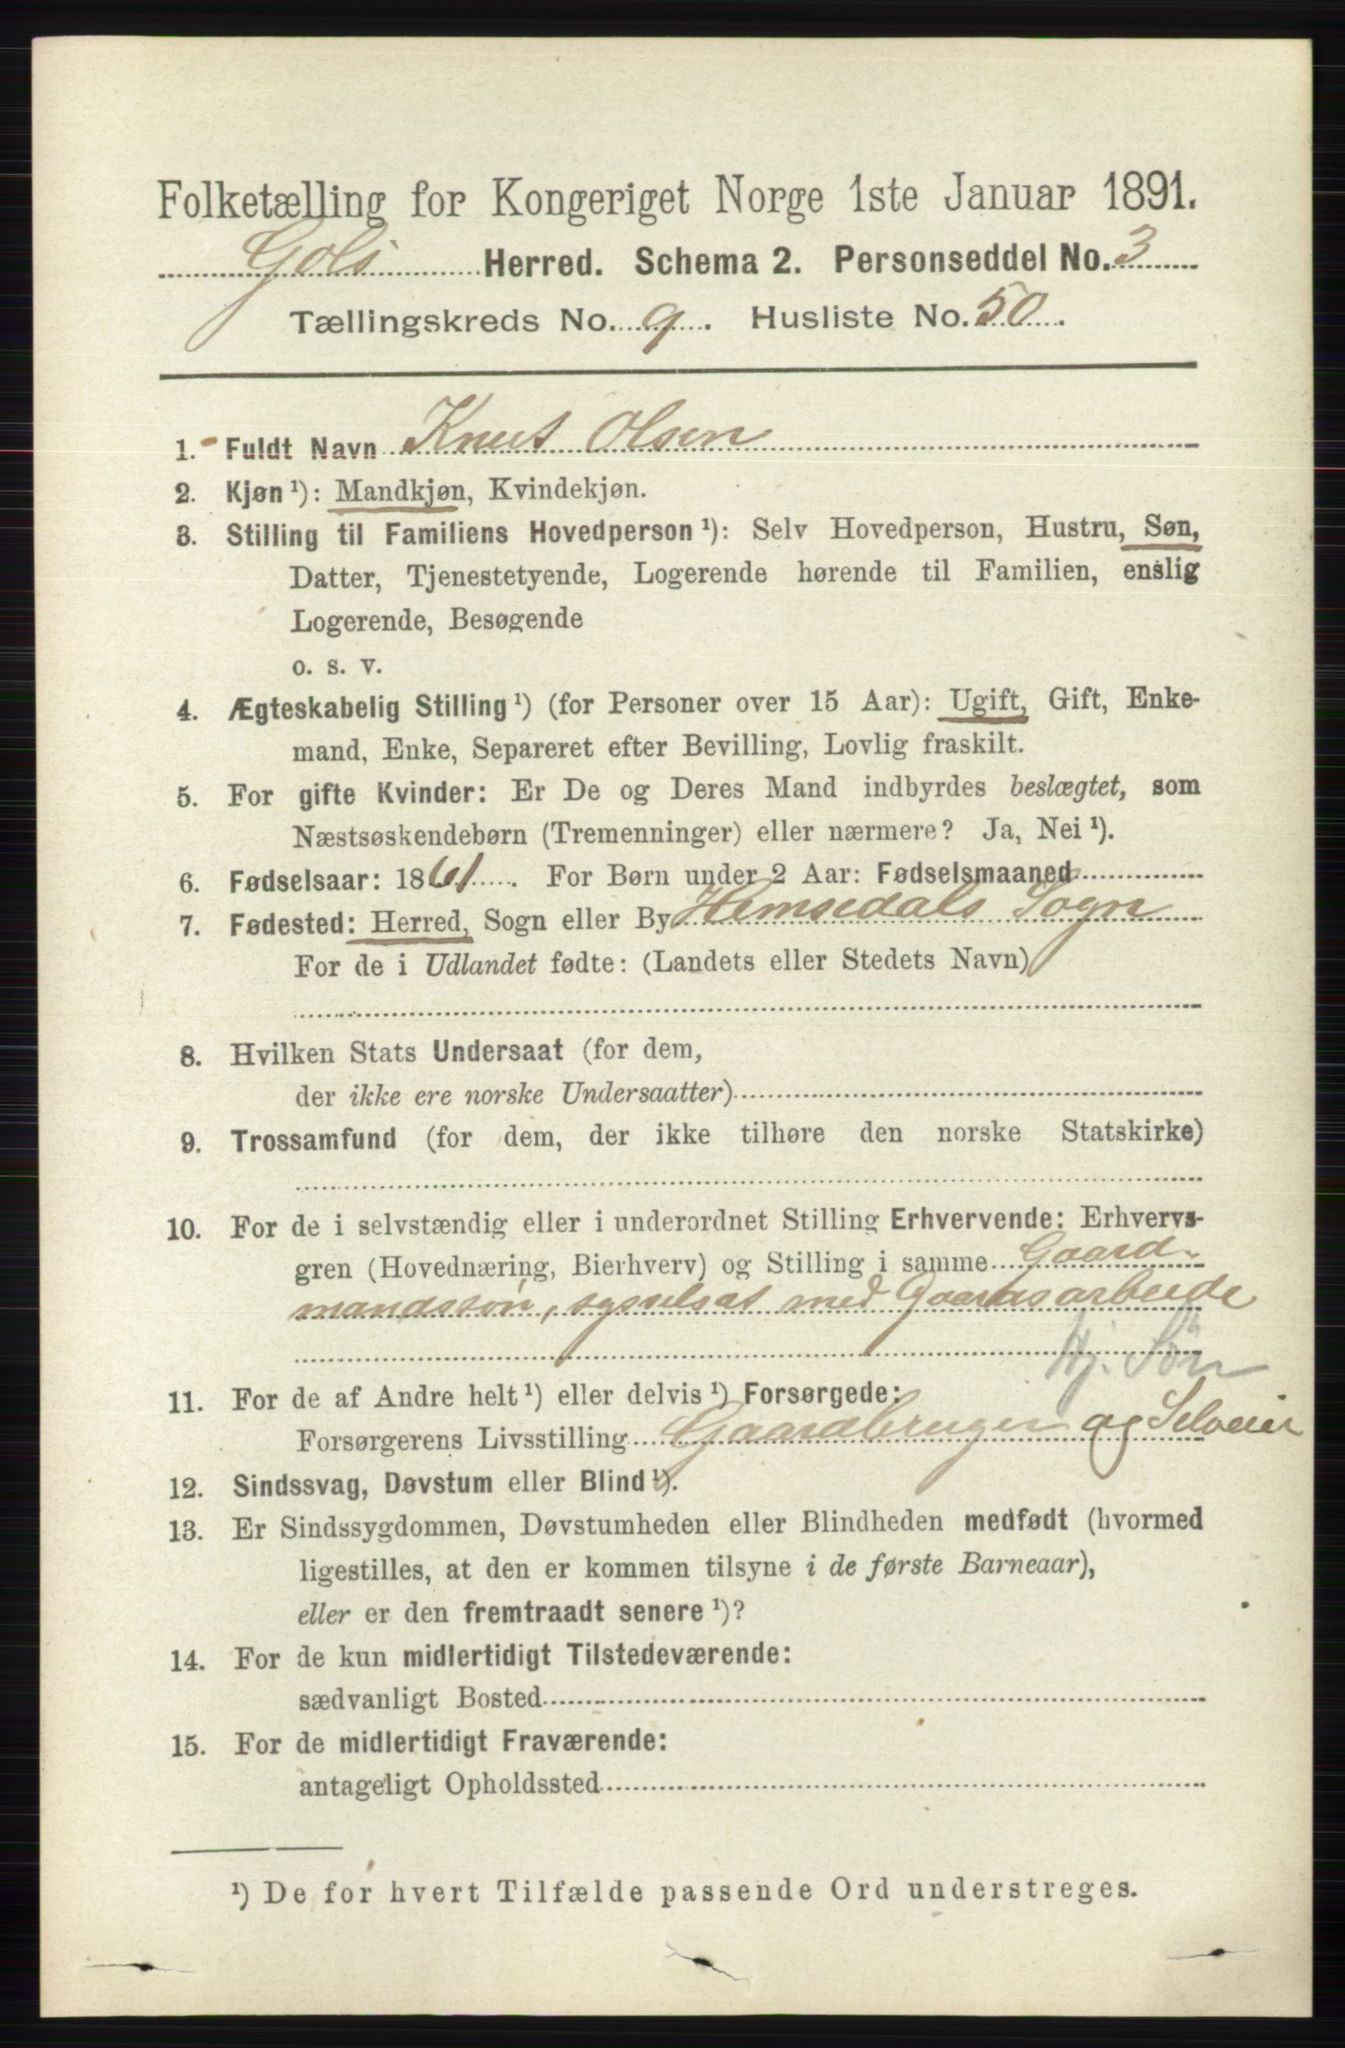 Folketælling for Kongeriget Norge 1ste Januar 1891.
Gols Herred. Schema 2. Personseddel No. 3
Tællingskreds No. 9. Husliste No. 50.
1. Fuldt Navn Knut Olsen
2. Kjøn ¹): Mandkjøn, Kvindekjøn.
3. Stilling til Familiens Hovedperson ¹): Selv Hovedperson, Hustru, Søn,
Datter, Tjenestetyende, Logerende hørende til Familien, enslig
Logerende, Besøgende
o. s. v.
4. Ægteskabelig Stilling ¹) (for Personer over 15 Aar): Ugift, Gift, Enke-
mand, Enke, Separeret efter Bevilling, Lovlig fraskilt.
5. For gifte Kvinder: Er De og Deres Mand indbyrdes beslægtet, som
Næstsøskendebørn (Tremenninger) eller nærmere? Ja, Nei ¹).
6. Fødselsaar: 1861. For Børn under 2 Aar: Fødselsmaaned
7. Fødested: Herred, Sogn eller By Hemsedals Sogn
For de i Udlandet fødte: (Landets eller Stedets Navn)
8. Hvilken Stats Undersaat (for dem,
der ikke ere norske Undersaatter)
9. Trossamfund (for dem, der ikke tilhøre den norske Statskirke)
10. For de i selvstændig eller i underordnet Stilling Erhvervende: Erhvervs-
gren (Hovednæring, Bierhverv) og Stilling i samme Gaard-
mandssøn, sysselsat med Gaardsarbeide
Hj. Søn
11. For de af Andre helt ¹) eller delvis ¹) Forsørgede:
Forsørgerens Livsstilling Gaardbruger og Selveier
12. Sindssvag, Døvstum eller Blind ¹).
13. Er Sindssygdommen, Døvstumheden eller Blindheden medfødt (hvormed
ligestilles, at den er kommen tilsyne i de første Barneaar),
eller er den fremtraadt senere ¹)?
14. For de kun midlertidigt Tilstedeværende:
sædvanligt Bosted
15. For de midlertidigt Fraværende:
antageligt Opholdssted
¹) De for hvert Tilfælde passende Ord understreges.